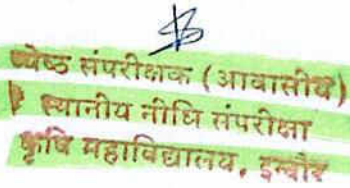 ज्येष्ठ संपरीक्षक (आवासीय)
स्थानीय नीधि संपरीक्षा
कृषि महाविद्यालय, इन्दौर